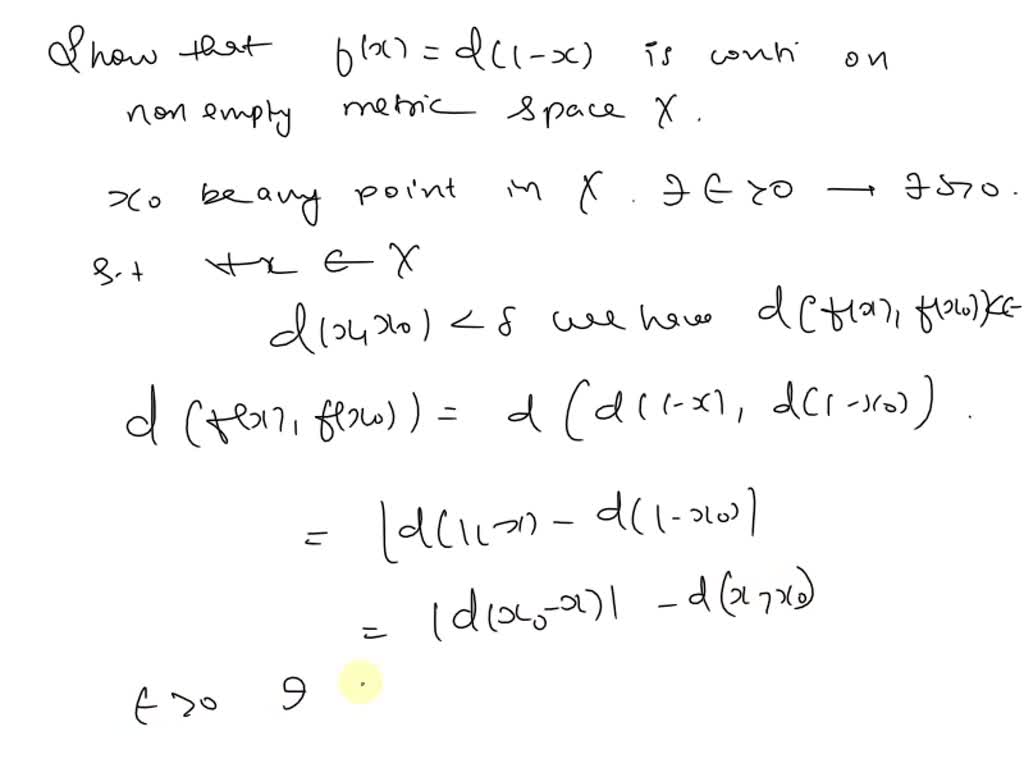 Show that f(x) = d(1-x) is conti on
non empty metric space X.
x0 be any point in X. ∃ ∈ >0 → ∃ δ>0.
S.t ∀x ∈ X
d(x, x0) < δ we have d(f(x), f(x0)) < ∈
d (f(x), f(x0)) = d (d(1-x), d(1-x0)).
= |d(1, x) - d(1-x0)|
= |d(x0-x)| - d(x, x0)
∈ >0 ∃